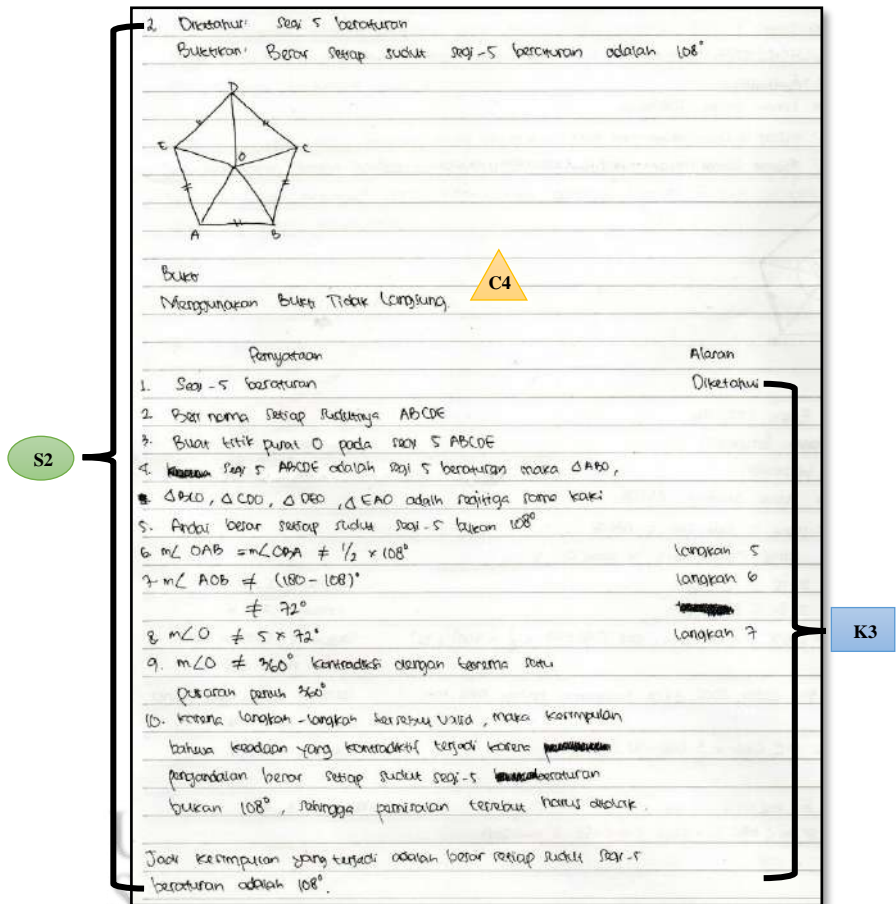 2. Diketahui: Segi 5 beraturan
Buktikan: Besar setiap sudut segi-5 beraturan adalah 108°
D
E
C
O
A
B
Bukti
C4
Menggunakan Bukti Tidak Langsung.
Pernyataan Alasan
1. Segi-5 beraturan Diketahui
2. Beri nama setiap sudutnya ABCDE
3. Buat titik pusat O pada segi 5 ABCDE
4. Segi 5 ABCDE adalah segi 5 beraturan maka △ABO,
△BCO, △CDO, △DEO, △EAO adalh segitiga sama kaki
S2
5. Andai besar setiap sudut segi-5 bukan 108°
6. m∠OAB = m∠OBA ≠ 1/2 × 108° langkah 5
7. m∠AOB ≠ (180 - 108)° langkah 6
≠ 72°
8. m∠O ≠ 5 × 72° langkah 7
K3
9. m∠O ≠ 360° kontradiksi dengan teorema satu
putaran penuh 360°
10. Karena langkah-langkah tersebut valid, maka kesimpulan
bahwa keadaan yang kontradiktif terjadi karena
pengandaian besar setiap sudut segi-5 beraturan
bukan 108°, sehingga pemisalan tersebut harus ditolak.
Jadi kesimpulan yang terjadi adalah besar setiap sudut segi-5
beraturan adalah 108°.